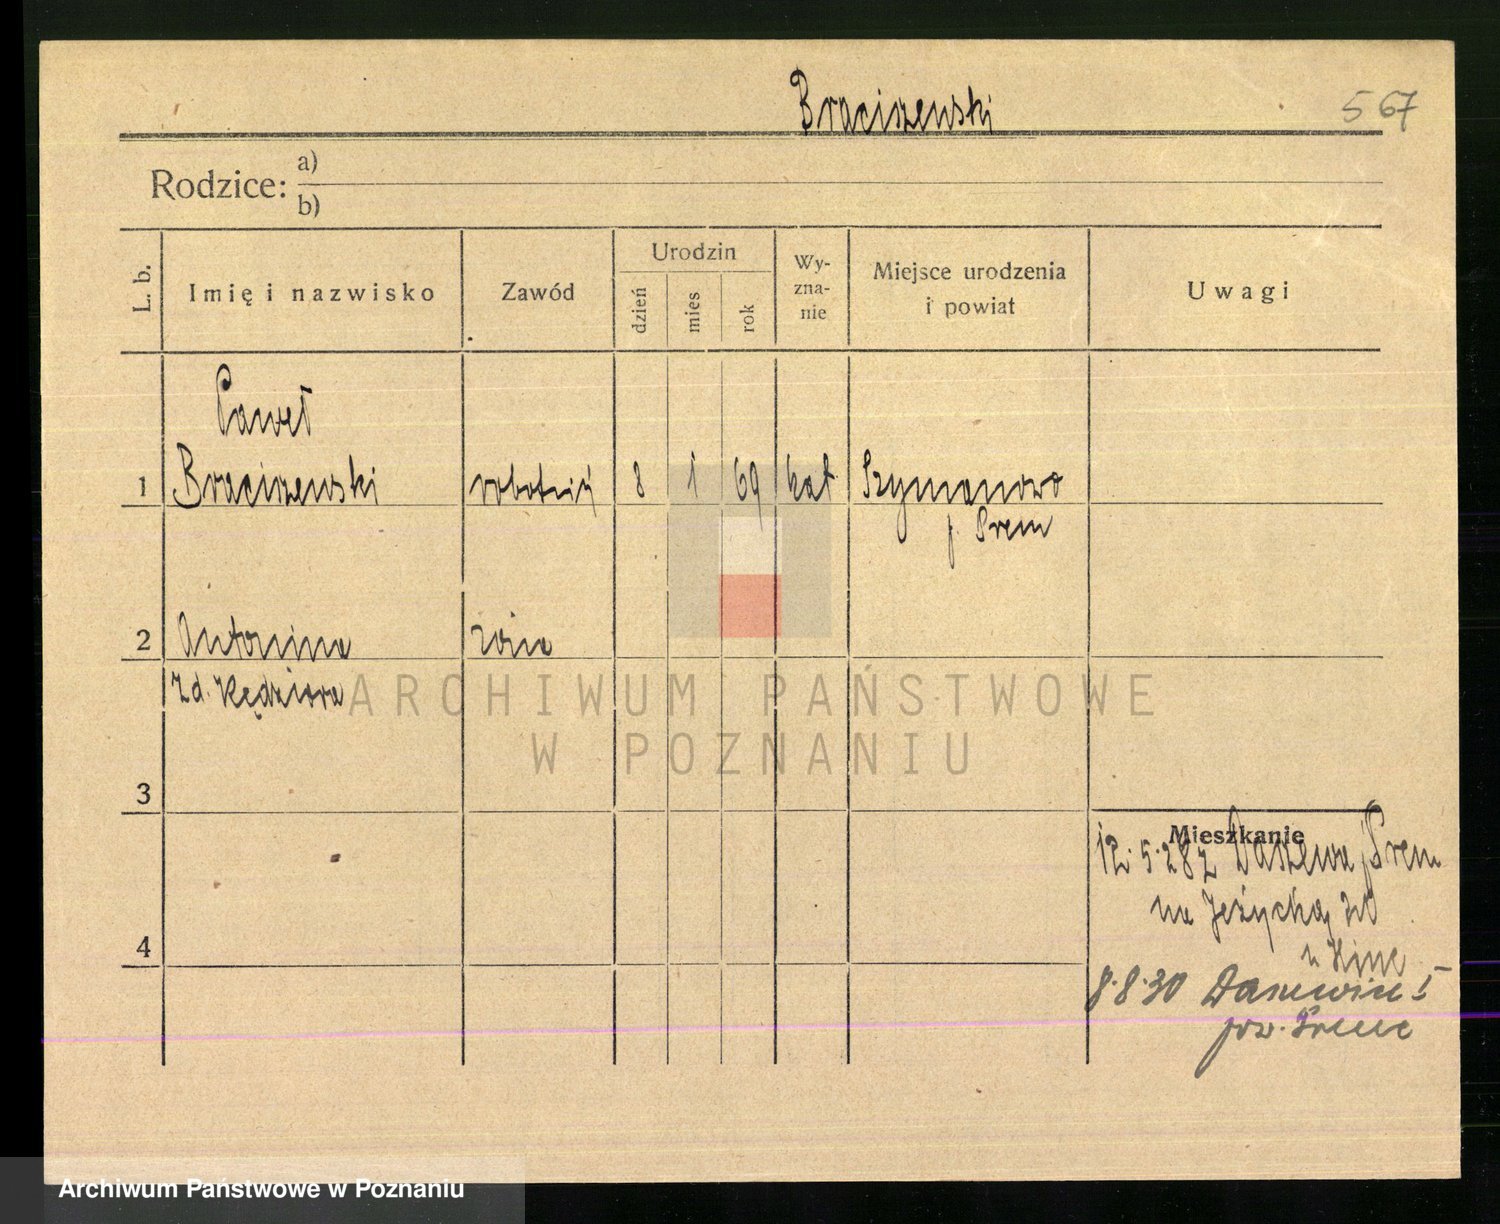 Braciszewski
567
Rodzice: a)
b)
L. b.
Imię i nazwisko
Zawód
Urodzin
dzień
mies
rok
Wy-
zna-
nie
Miejsce urodzenia
i powiat
Uwagi
Paweł
1 Braciszewski robotnik 8 1 69 kat Szymanowo
p. Śrem
2 Antonina żona
zd. Kędziora
ARCHIWUM PAŃSTWOWE
W POZNANIU
3
Mieszkanie
12.5.28 z Daszewa, Śrem
na Jeżycka 20
4
8.8.30
pow. Śrem
Archiwum Państwowe w Poznaniu